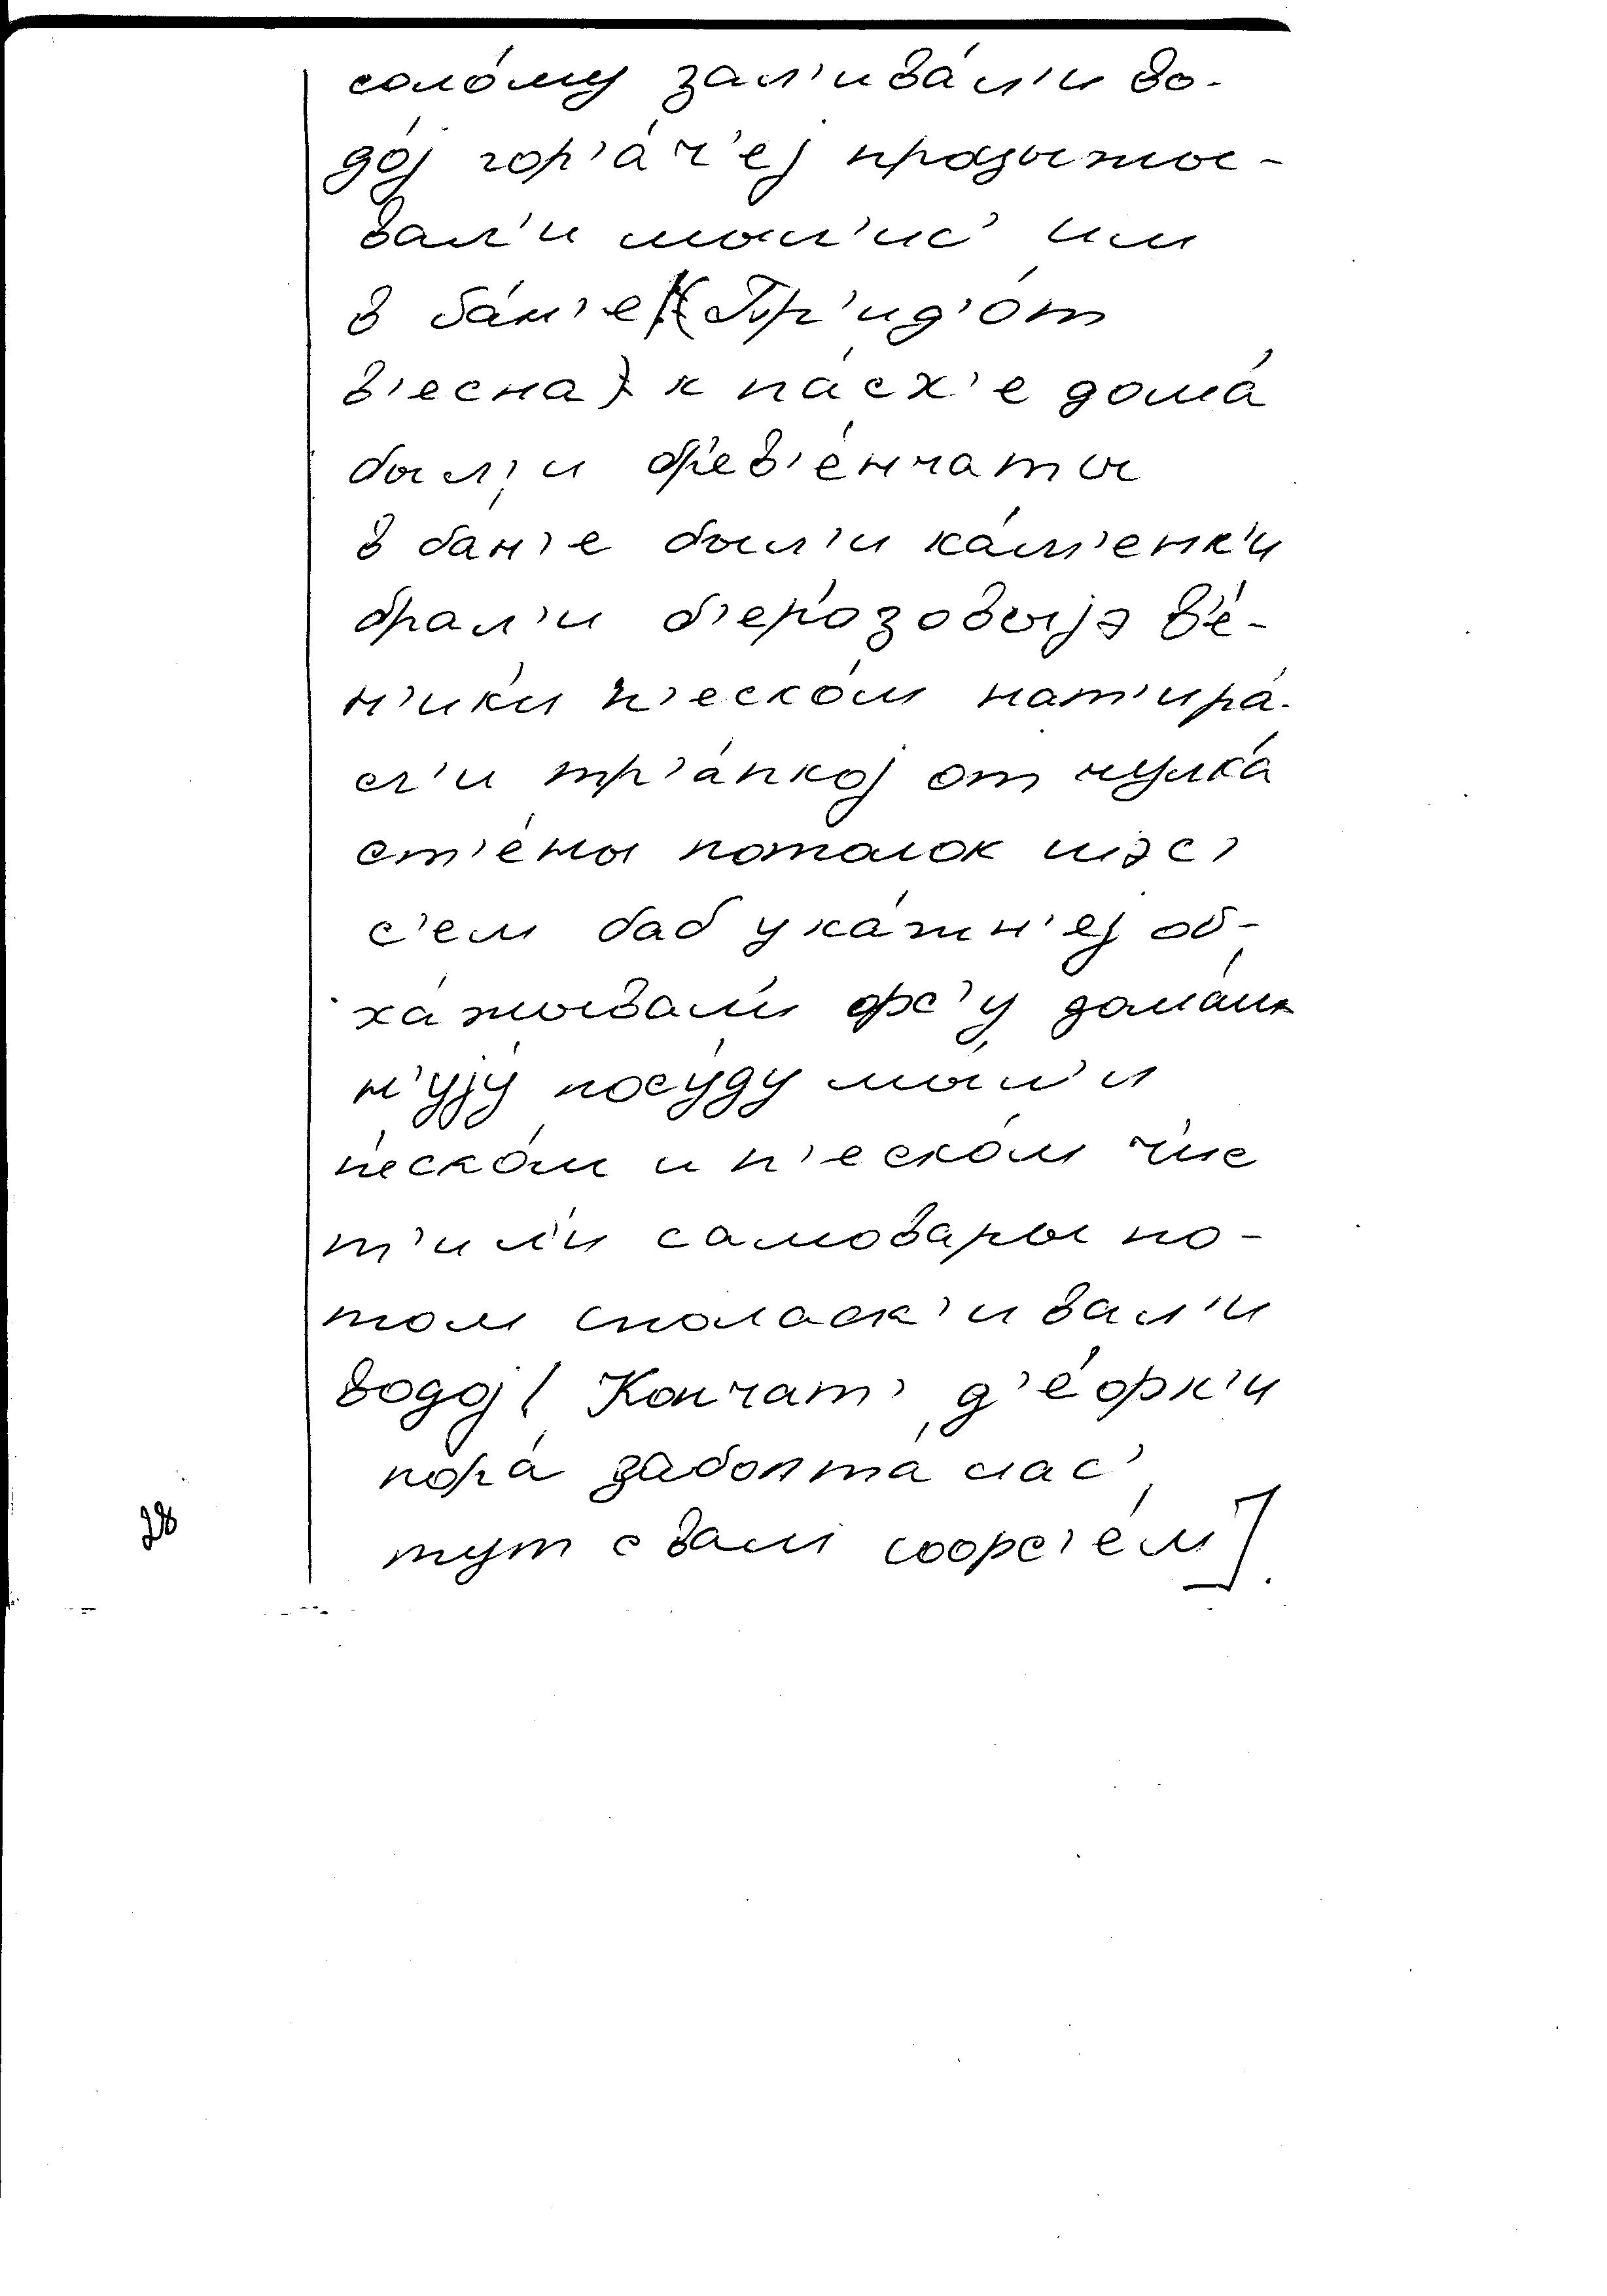 соло́му зал'ива́л'и во-
до́j гор'а́ч'еj прозыжы-
вал'и мыл'ис' им
в ба́н'е (Пр'ид'о́т
в'есна) к па́сх'е дома́
был'и бр'ев'е́нчаты
в бан'е был'и ка́м'енк'и
брал'и б'ер'о́зовыjэ в'е́-
н'ики п'еско́м нат'ира́-
л'и тр'а́пкоj от чулка́
ст'е́ны потолок шэс'
с'ем баб у ка́жн'еj об-
ха́жывал'и фс'у дома́ш
н'уjу́ посу́ду мы́л'и
п'еско́м и п'еско́м ч'ис
т'ил'и самовары по-
том споласк'ивал'и
водоj( Кончат' д'е́фк'и
пора́ заболта́лас'
тут с вам'и софс'е́м].
28